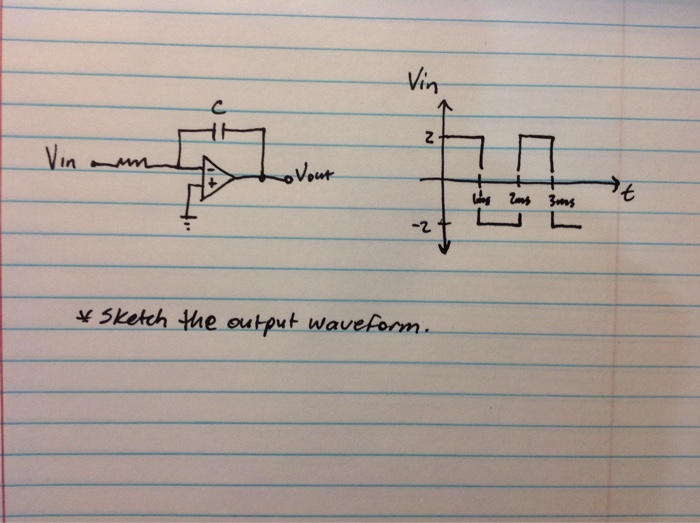 C
Vin
Vout
-
+
Vin
2
-2
1ms 2ms 3ms
t
* Sketch the output waveform.